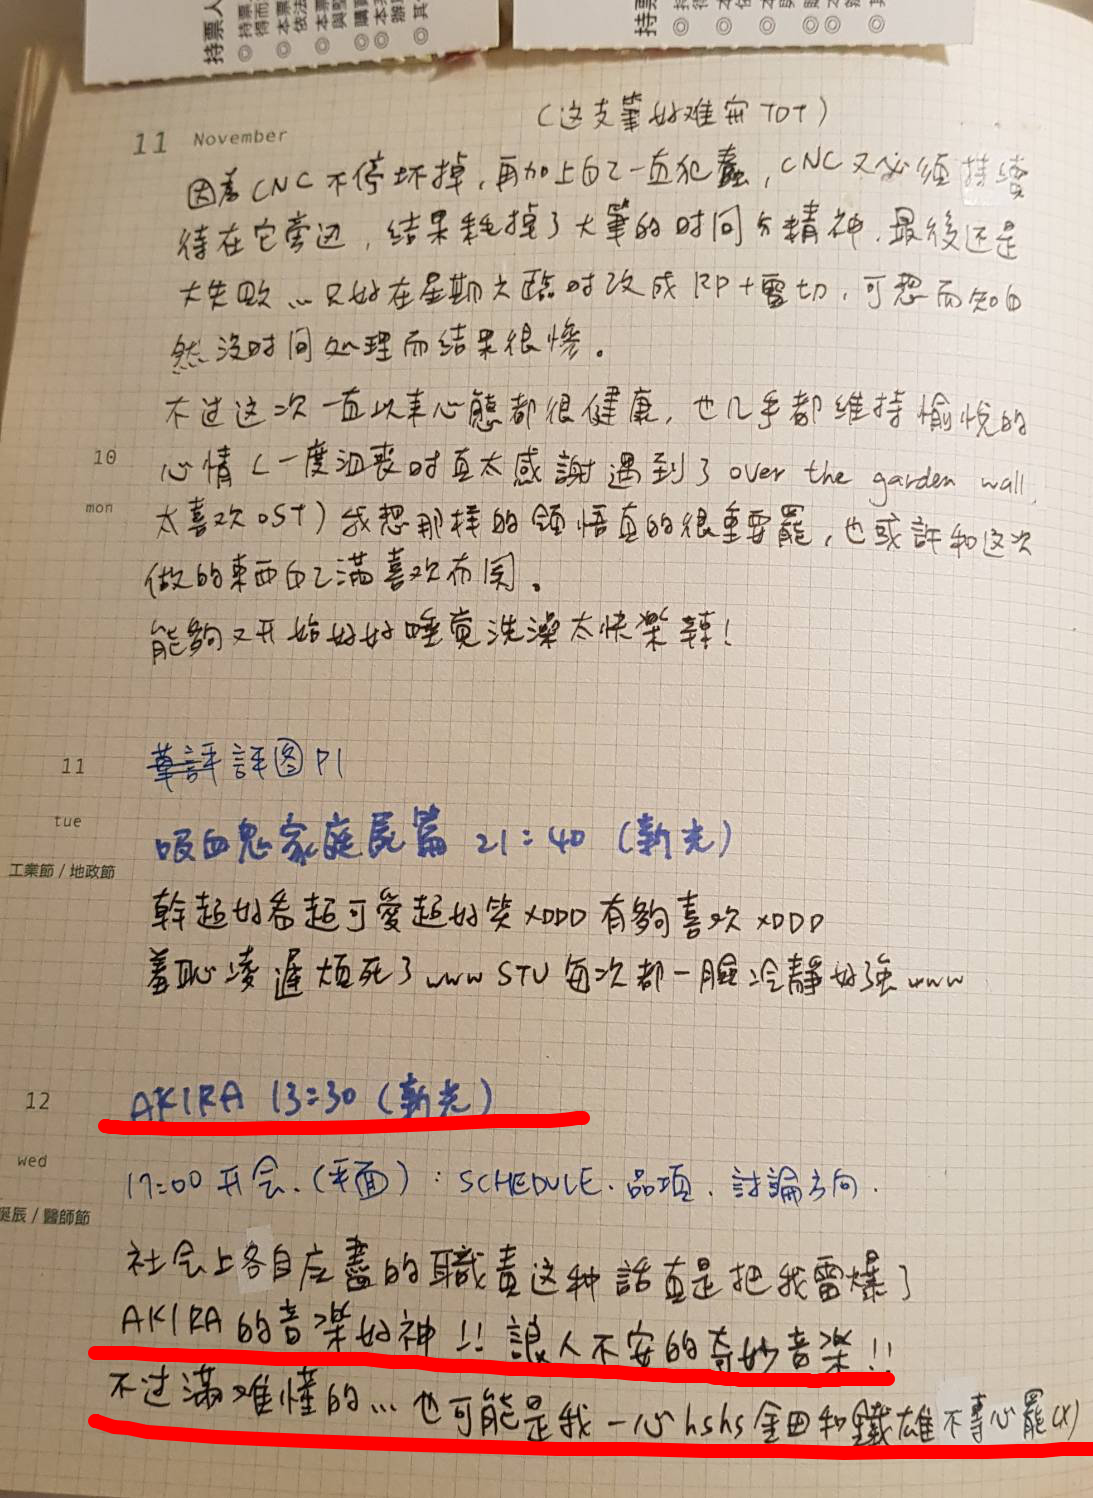 持票人
◎ 持票
得而
◎ 本票
依法
◎ 本票
與堅
◎ 購買
◎ 本
辦
◎ 其
持票
11 November
(这支筆好难穿TOT)
因為CNC不停坏掉,再加上自己一直犯蠢,CNC又必須持續
待在它旁边,結果耗掉了大筆的时间与精神.最後还是
大失败...只好在星期六臨时改成RP+雷切,可想而知自
然沒时间处理而結果很惨。
不过这次一直以来心態都很健康,也几乎都維持愉悅的
10 心情(一度沮喪时真太感謝遇到了over the garden wall,
mon 太喜欢OST)我想那样的領悟真的很重要罷,也或許和这次
做的東西自己滿喜欢有関。
能夠又开始好好睡覚洗澡太快樂辣!
11 華評評图P1
tue
吸血鬼家庭屍篇 21:40 (新光)
工業節/地政節
幹超好看超可愛超好笑XDDD有夠喜欢XDDD
羞恥凌遲煩死了www STU每次都一臉冷靜好強www
12 AKIRA 13:30 (新光)
wed 17:00 开会.(平面):SCHEDULE.品項.討論方向.
誕辰/醫師節
社会上各自应盡的職責这种話真是把我雷爆了
AKIRA的音楽好神!! 讓人不安的奇妙音楽!!
不过滿难懂的...也可能是我一心hshs金田和鐵雄不專心罷(X)